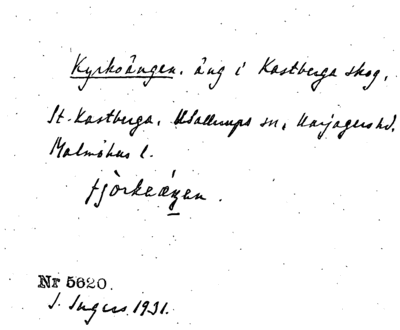 Kyrkoängen. äng i Kastberga skog,
St. Kastberga, Vallerups sn, Harjagers hd.
Malmöhus l.
Nr 5620.
J. Ingers 1931.